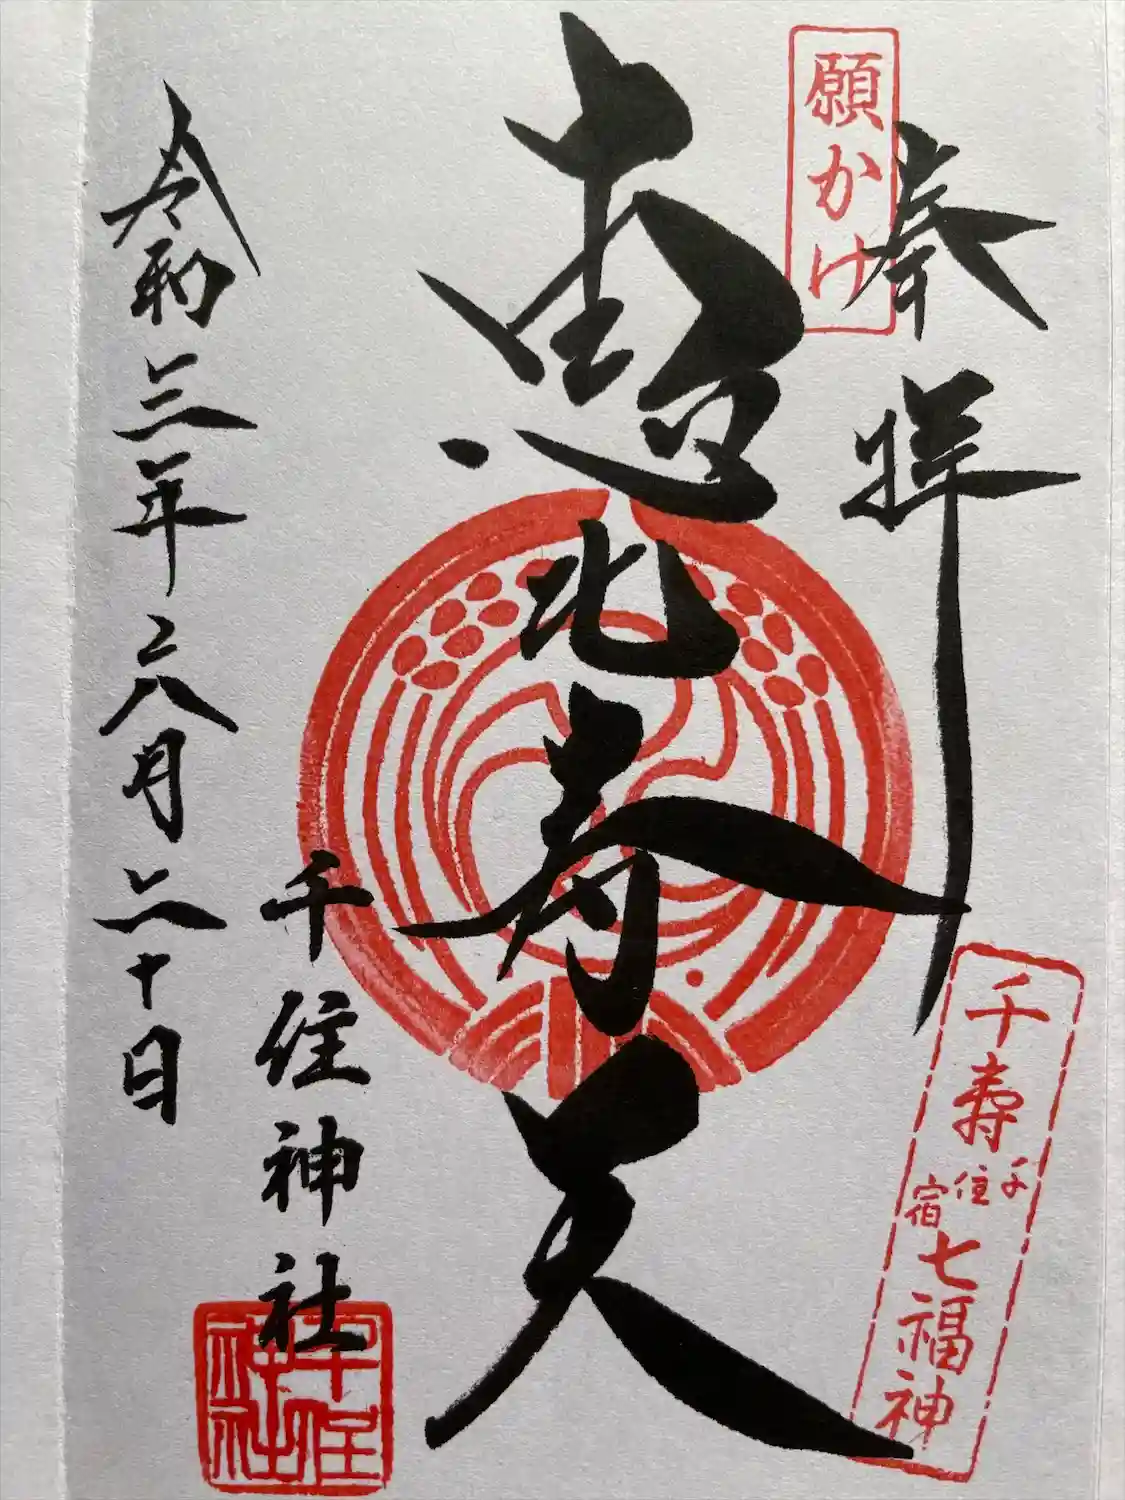 願かけ
奉拝
千壽
千住宿
七福神
恵比寿天
千住神社
千住神社
令和三年六月二十日